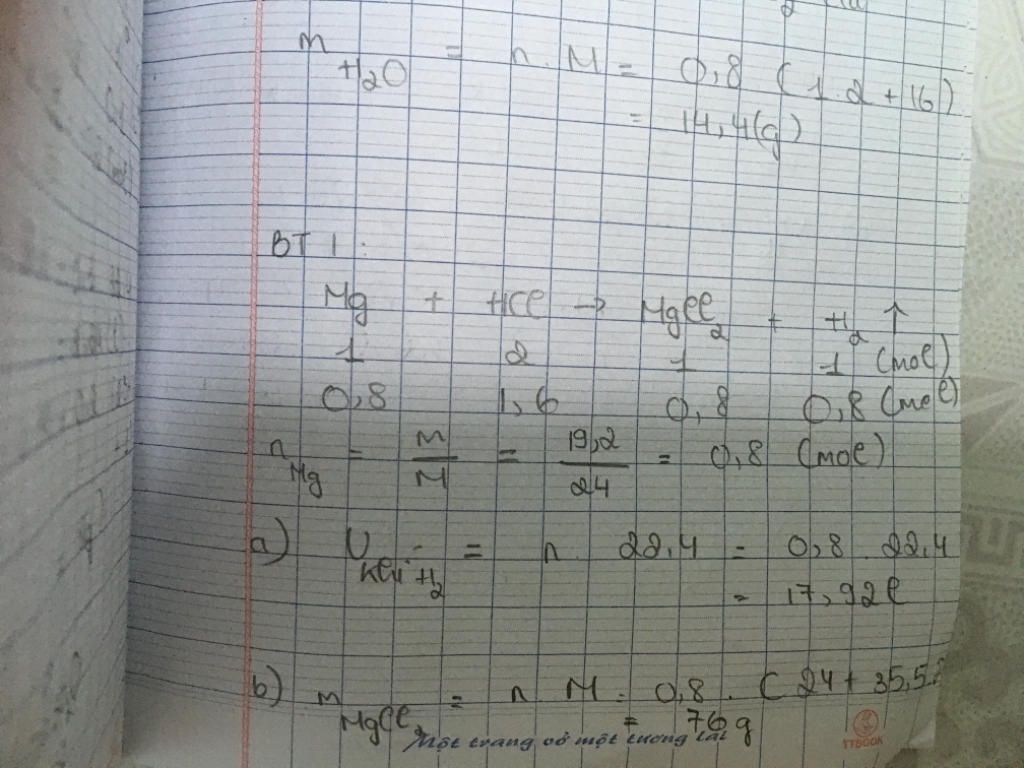 m H₂O = n . M = 0,8 (1.2+16)
= 14,4(g)
BT 1 :
Mg + HCl → MgCl₂ + H₂ ↑
1 2 1 1 (mol)
0,8 1,6 0,8 0,8 (mol)
n Mg = m/M = 19,2/24 = 0,8 (mol)
a) V khí H₂ = n . 22,4 = 0,8 . 22,4
= 17,92l
b) m MgCl₂ = n . M = 0,8 . (24 + 35,5.2
= 76g
Một trang vở một tương lai
TTBOOK